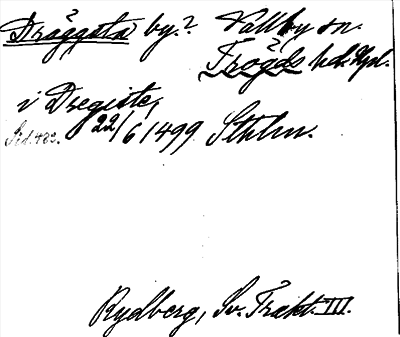 Dräggsta by.? Vallby sn.
Trögds hd. Upl.
i Dregiste,
Sid. 482. 22/6 1499 Sthlm.
Rydberg, Sv. Trakt. III.